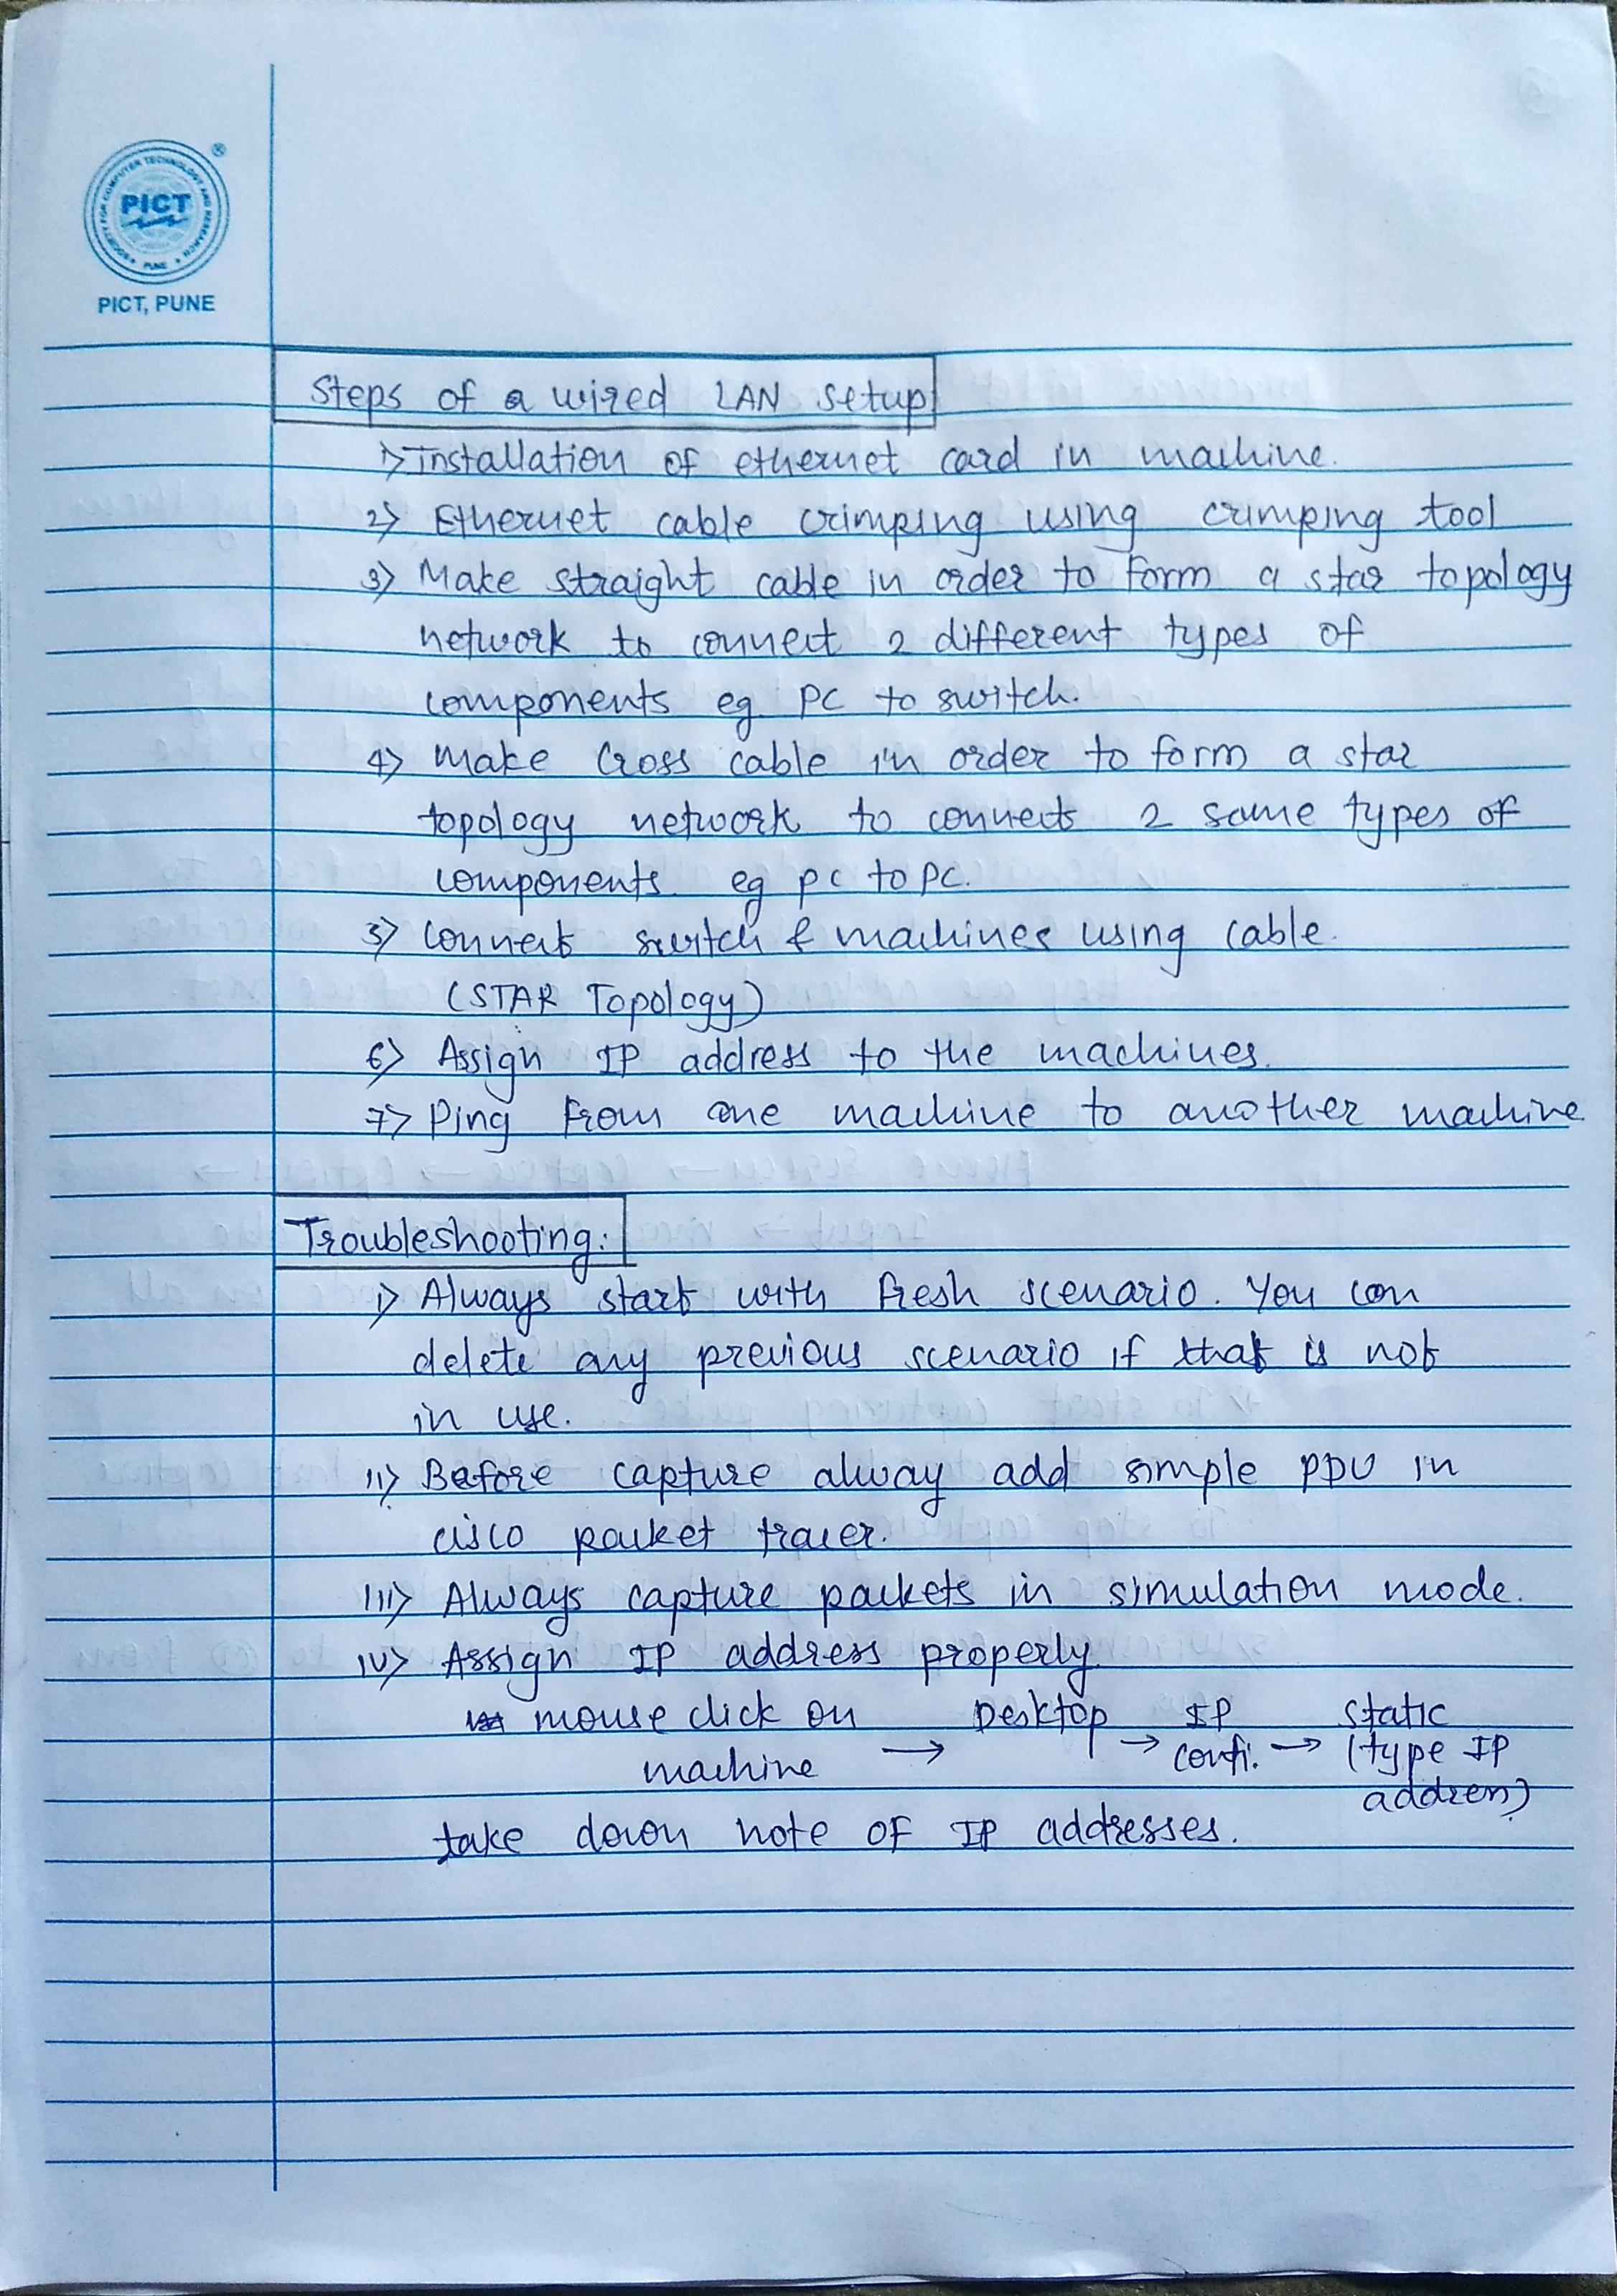 SOCIETY FOR COMPUTER TECHNOLOGY AND RESEARCH
PICT
PUNE
®
PICT, PUNE
Steps of a wired LAN setup
1> Installation of ethernet card in machine.
2> Ethernet cable crimping using crimping tool
3> Make straight cable in order to form a star topology
network to connect 2 different types of
components eg. PC to switch.
4> Make Cross cable in order to form a star
topology network to connects 2 same types of
components. eg pc to PC.
5> Connect switch & machines using cable.
(STAR Topology)
6> Assign IP address to the machines.
7> Ping from one machine to another machine
Troubleshooting:
i> Always start with fresh scenario. You can
delete any previous scenario if that is not
in use.
ii> Before capture alway add simple PDU in
cisco packet tracer.
iii> Always capture packets in simulation mode.
iv> Assign IP address properly.
mouse click on Desktop IP static
machine → → confi. → (type IP
address)
take down note of IP addresses.